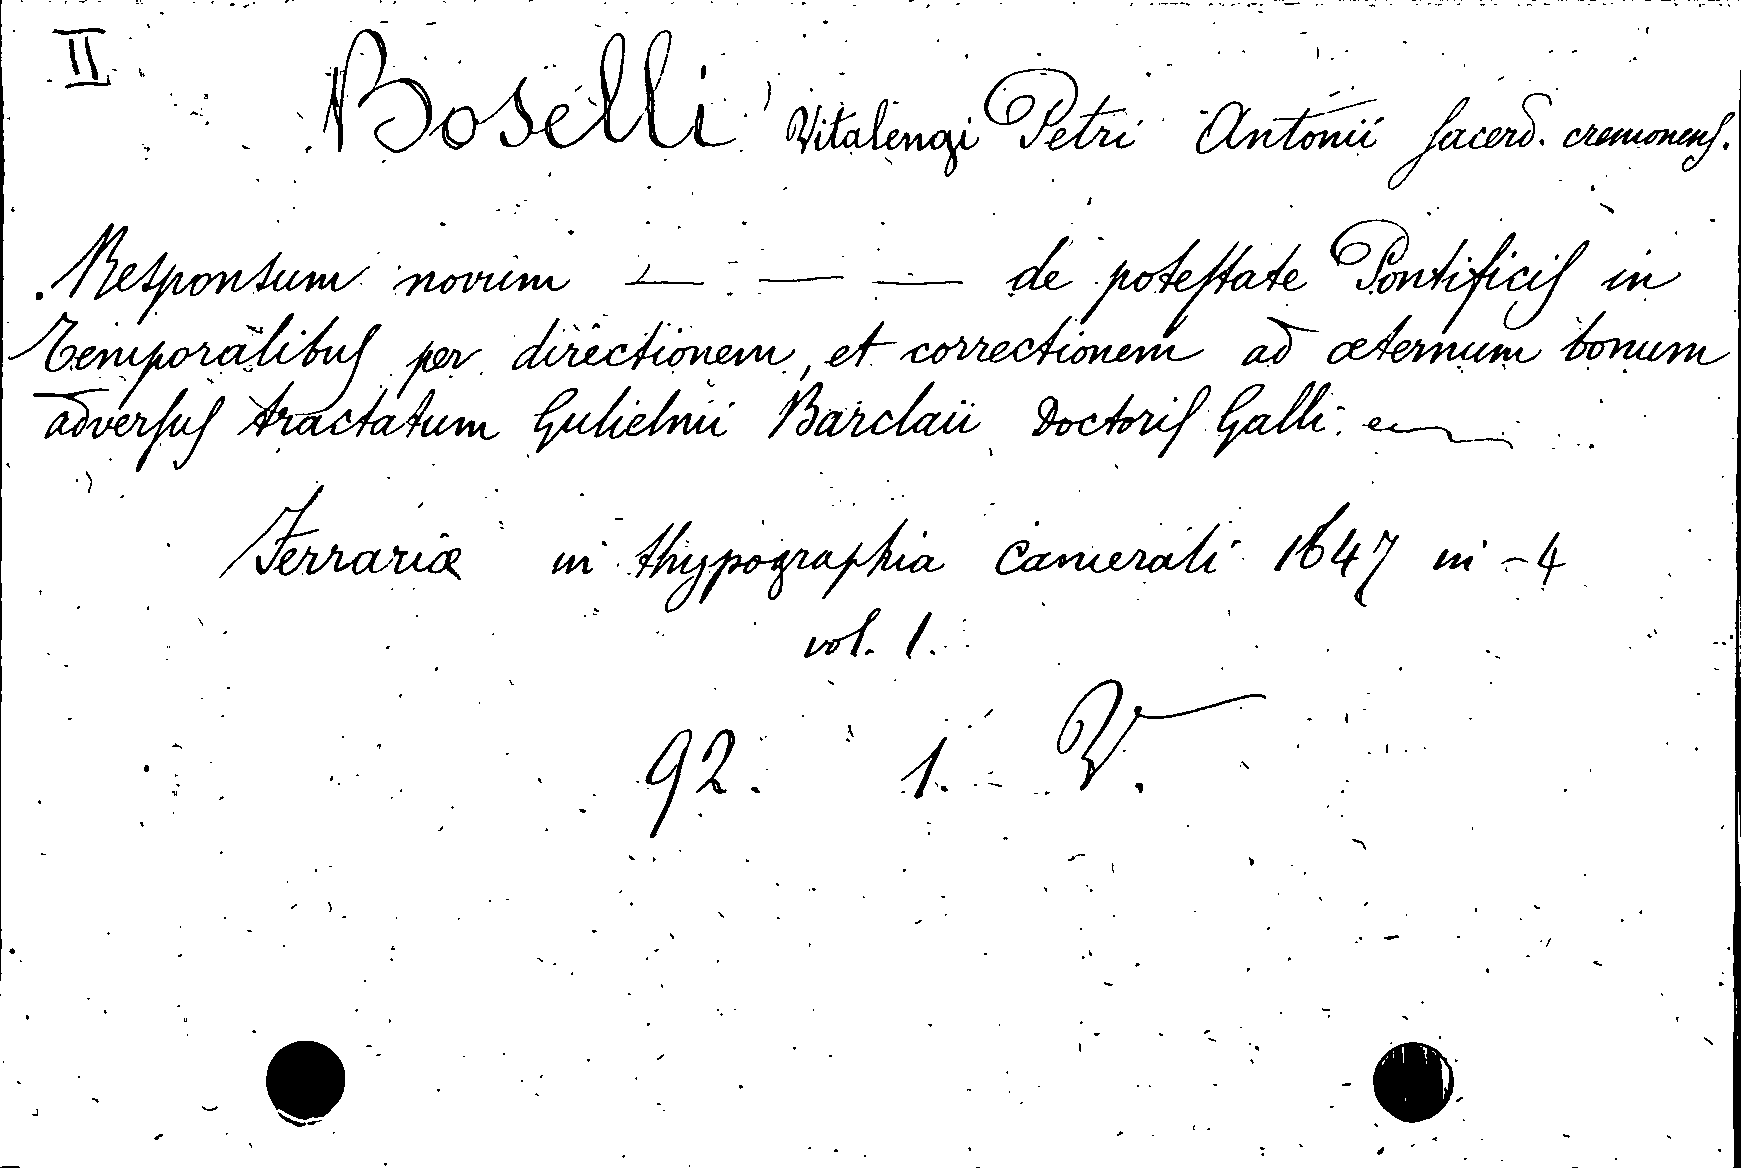 II
Boselli Vitalengi Petri Antonii Sacerd. cremonens.
Responsum novum — — — de potestate Pontificis in
Temporalibus per directionem, et correctionem ad æternum bonum
adversus tractatum Gulielmi Barclaii Doctoris Galli.
Ferrariæ in thypographia Camerali 1647 in -4
vol. 1.
92. 1. V.